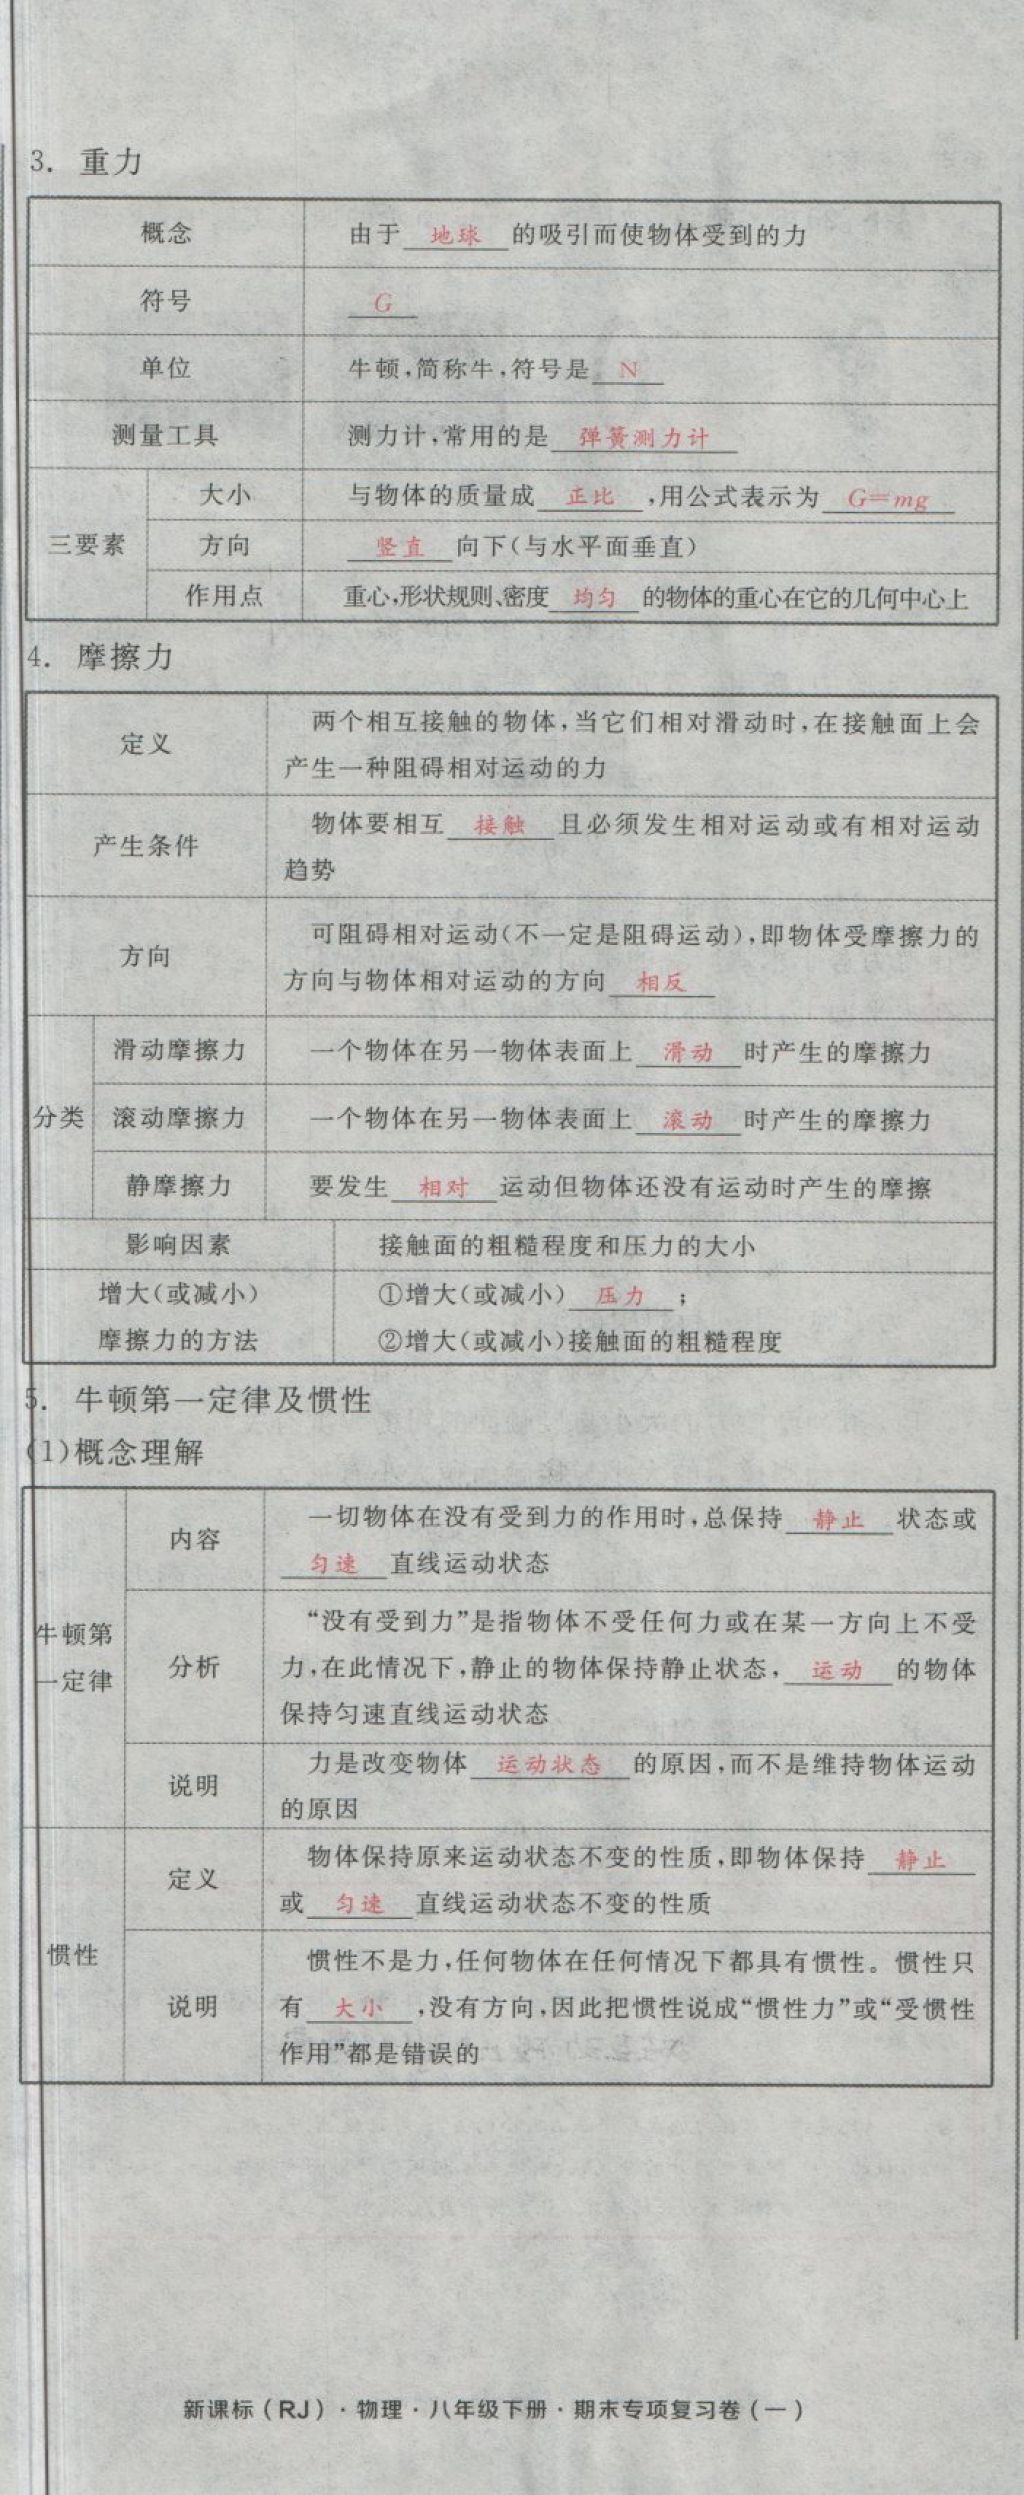 3. 重力
概念 由于 地球 的吸引而使物体受到的力
符号 G
单位 牛顿,简称牛,符号是 N
测量工具 测力计,常用的是 弹簧测力计
大小 与物体的质量成 正比 ,用公式表示为 G=mg
三要素 方向 竖直 向下(与水平面垂直)
作用点 重心,形状规则、密度 均匀 的物体的重心在它的几何中心上
4. 摩擦力
定义 两个相互接触的物体,当它们相对滑动时,在接触面上会
产生一种阻碍相对运动的力
产生条件 物体要相互 接触 且必须发生相对运动或有相对运动
趋势
方向 可阻碍相对运动(不一定是阻碍运动),即物体受摩擦力的
方向与物体相对运动的方向 相反
滑动摩擦力 一个物体在另一物体表面上 滑动 时产生的摩擦力
分类 滚动摩擦力 一个物体在另一物体表面上 滚动 时产生的摩擦力
静摩擦力 要发生 相对 运动但物体还没有运动时产生的摩擦
影响因素 接触面的粗糙程度和压力的大小
增大(或减小) ①增大(或减小) 压力 ;
摩擦力的方法 ②增大(或减小)接触面的粗糙程度
5. 牛顿第一定律及惯性
(1)概念理解
牛顿第
一定律
内容 一切物体在没有受到力的作用时,总保持 静止 状态或
匀速 直线运动状态
分析 “没有受到力”是指物体不受任何力或在某一方向上不受
力,在此情况下,静止的物体保持静止状态, 运动 的物体
保持匀速直线运动状态
说明 力是改变物体 运动状态 的原因,而不是维持物体运动
的原因
惯性
定义 物体保持原来运动状态不变的性质,即物体保持 静止
或 匀速 直线运动状态不变的性质
说明 惯性不是力,任何物体在任何情况下都具有惯性。惯性只
有 大小 ,没有方向,因此把惯性说成“惯性力”或“受惯性
作用”都是错误的
新课标(RJ)·物理·八年级下册·期末专项复习卷(一)